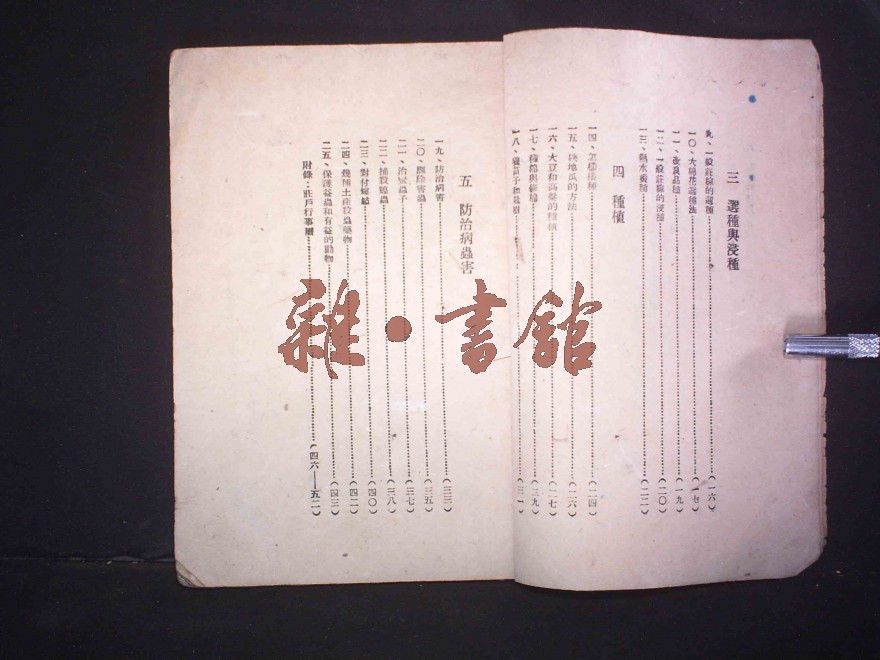 三 選種與浸種
九、一般莊稼的選種(一六)
一〇、大棉花選種法(一七)
一一、改良品種(一九)
一二、一般莊稼的浸種(二〇)
一三、熱水浸種(二二)
四 種植
一四、怎樣播種(二四)
一五、栽地瓜的方法(二六)
一六、大豆和高粱的種植(二七)
一七、種棉與(二九)
一八、(三一)
五 防治病蟲害
一九、防治病害(三三)
二〇、驅除害蟲(三五)
二一、治蟲子(三七)
二二、捕殺蝗蟲(三八)
二三、對付(四〇)
二四、幾種土產殺蟲藥物(四二)
二五、保護益蟲和有益的動物(四三)
附錄:莊戶行事曆(四六——五二)
雜·書館